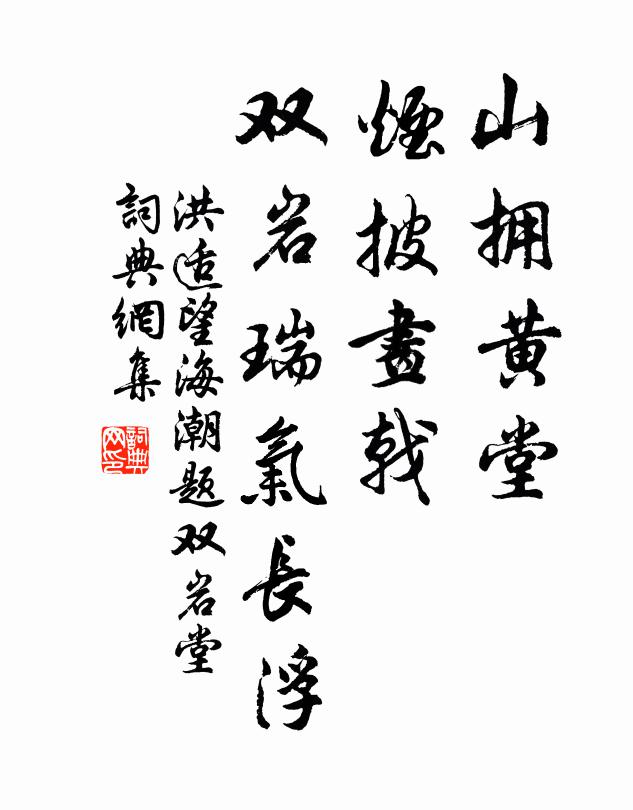 山拥黄堂
烟披畫戟
双岩瑞氣長浮
洪适望海潮题双岩堂
詞典網集
詞典网印